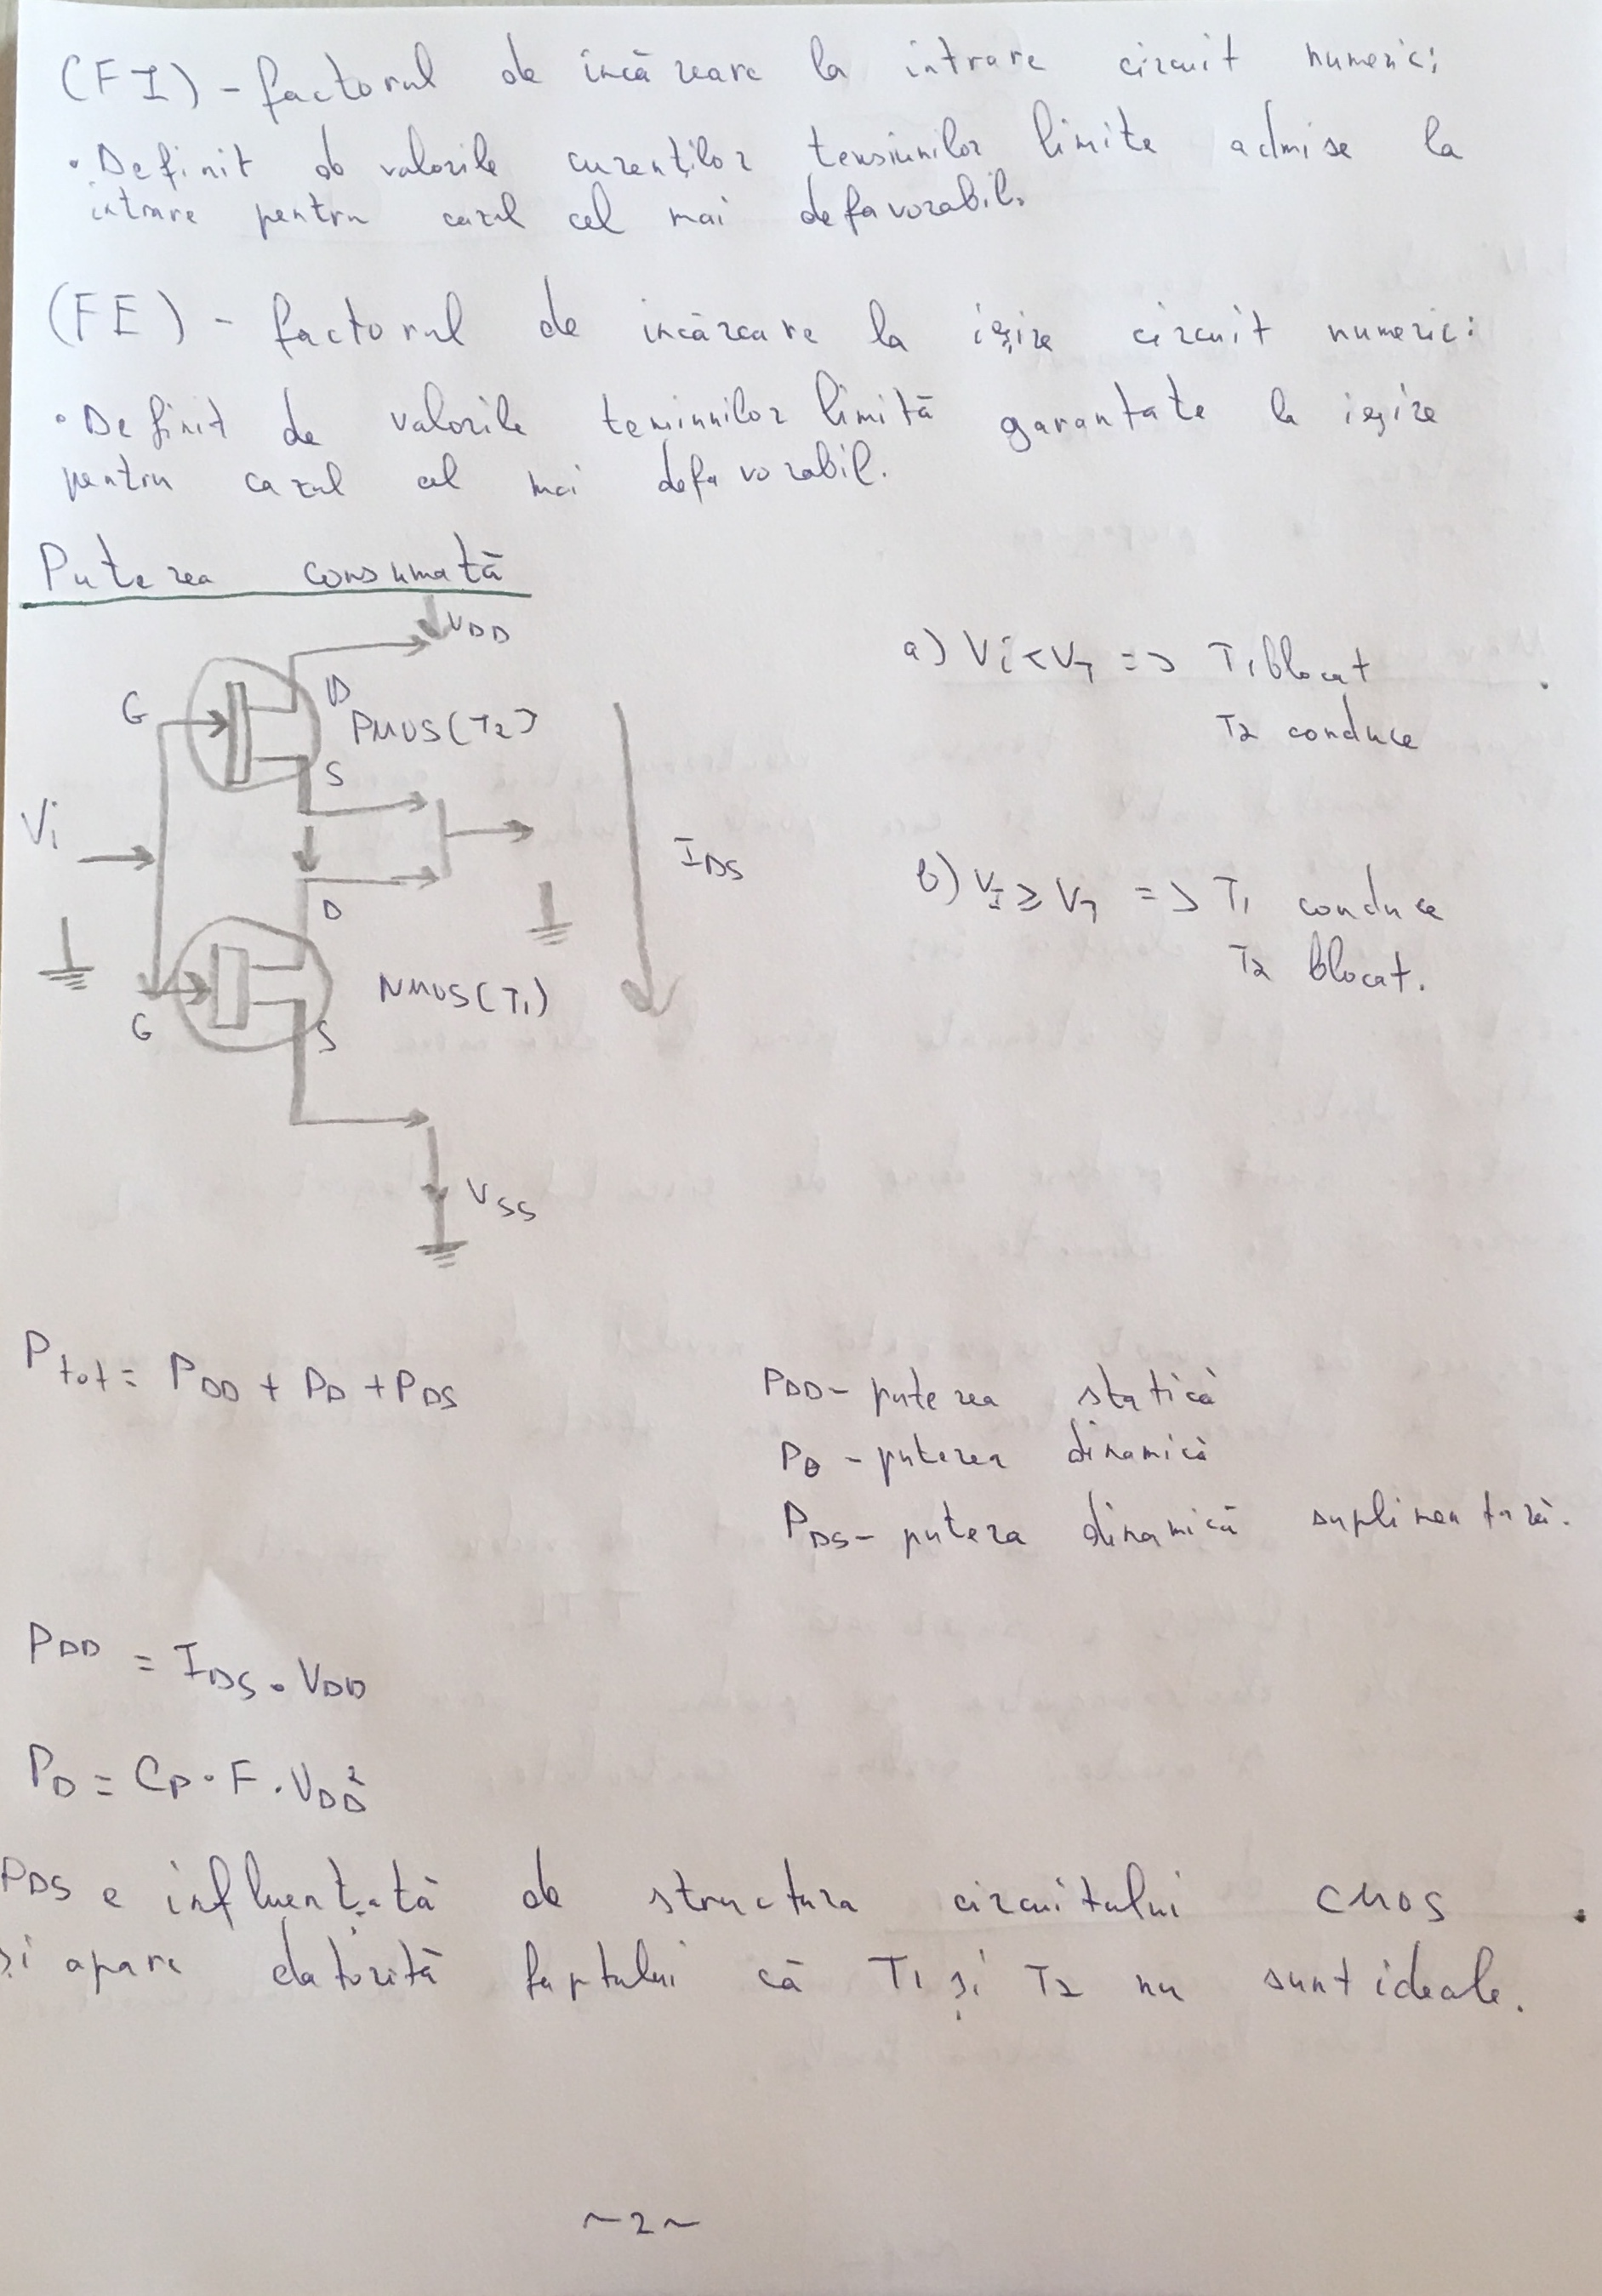 (FI) - factorul de incărcare la intrare circuit numeric:
• Definit de valorile curenților tensiunilor limite admise la
intrare pentru cazul cel mai defavorabil.
(FE) - factorul de incărcare la ieșire circuit numeric:
• Definit de valorile limită garantate la ieșire
pentru cazul cel mai defavorabil.
Puterea consumată
VDD
G
D
PMOS(T2)
S
Vi
IDS
D
NMOS(T1)
G
S
VSS
a) Vi < VT => T1 blocat
T2 conduce
b) VI ≥ VT => T1 conduce
T2 blocat.
Ptot = PDD + PD + PDS
PDD - puterea statică
PD - puterea dinamică
PDS - putera dinamică suplimentară.
PDD = IDS • VDD
PD = CP • F • VDD²
PDS e influențată de structura circuitului CMOS
și apare datorită faptului că T1 și T2 nu sunt ideale.
~2~